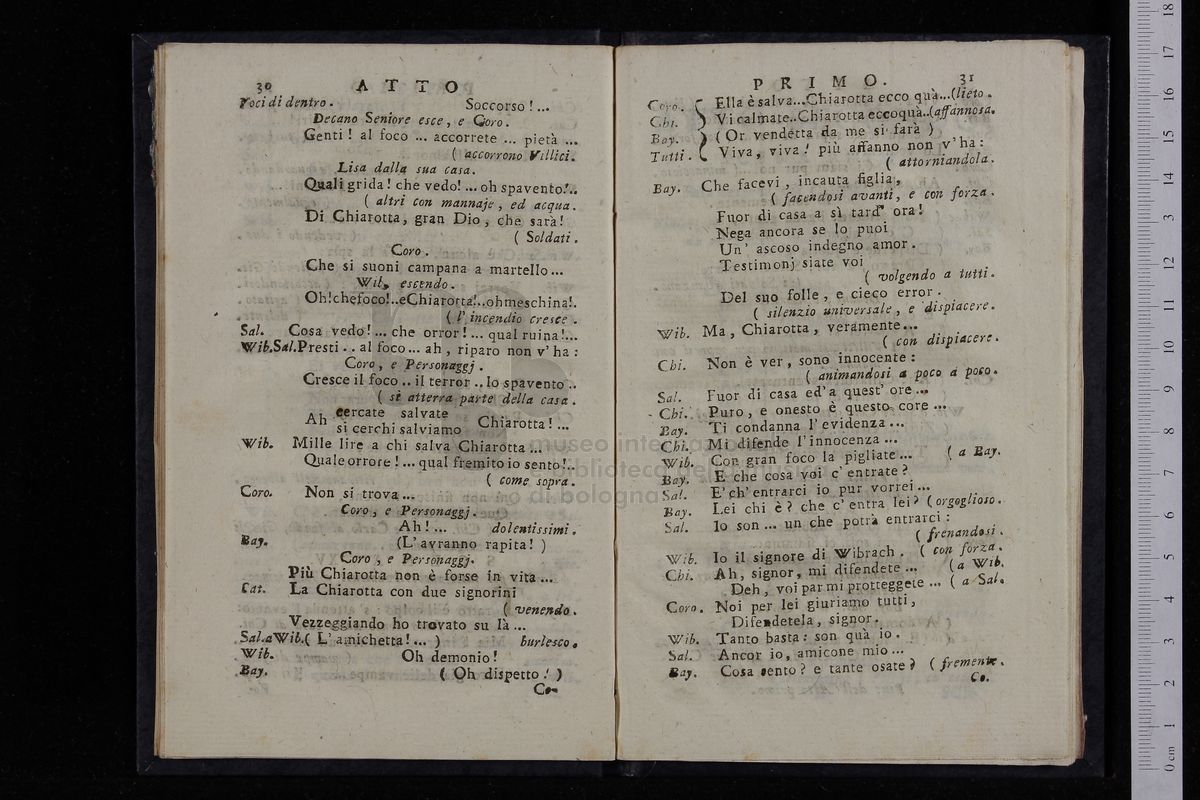 30 ATTO
Voci di dentro. Soccorso!...
Decano Seniore esce, e Coro.
Genti! al foco ... accorrete ... pietà ...
( accorrono Villici.
Lisa dalla sua casa.
Quali grida! che vedo!... oh spavento!..
( altri con mannaje, ed acqua.
Di Chiarotta, gran Dio, che sarà!
( Soldati.
Coro.
Che si suoni campana a martello...
Wil, escendo.
Oh!chefoco!..eChiarotta!..ohmeschina!.
( l'incendio cresce.
Sal. Cosa vedo!... che orror!... qual ruina!...
Wib.Sal.Presti.. al foco... ah, riparo non v'ha:
Coro, e Personaggj.
Cresce il foco.. il terror.. lo spavento..
( si atterra parte della casa.
Ah cercate salvate Chiarotta!...
si cerchi salviamo
Wib. Mille lire a chi salva Chiarotta...
Quale orrore!... qual fremito io sento!..
( come sopra.
Coro. Non si trova...
Coro, e Personaggj.
Ah!... dolentissimi.
Bay. (L'avranno rapita!)
Coro, e Personaggj.
Più Chiarotta non è forse in vita...
Cat. La Chiarotta con due signorini
( venendo.
Vezzeggiando ho trovato su là...
Sal.aWib.( L'amichetta!... ) burlesco.
Wib. Oh demonio!
Bay. ( Oh dispetto! )
Co-
PRIMO. 31
Coro. Ella è salva...Chiarotta ecco quà...(lieto.
Chi. Vi calmate..Chiarotta eccoquà..(affannosa.
Bay. ( Or vendetta da me si farà )
Tutti. Viva, viva! più affanno non v'ha:
( attorniandola.
Bay. Che facevi, incauta figlia,
( facendosi avanti, e con forza.
Fuor di casa a sì tard' ora!
Nega ancora se lo puoi
Un' ascoso indegno amor.
Testimonj siate voi
( volgendo a tutti.
Del suo folle, e cieco error.
( silenzio universale, e dispiacere.
Wib. Ma, Chiarotta, veramente...
( con dispiacere.
Chi. Non è ver, sono innocente:
( animandosi a poco a poco.
Sal. Fuor di casa ed'a quest' ore...
Chi. Puro, e onesto è questo core...
Bay. Ti condanna l'evidenza...
Chi. Mi difende l'innocenza...
Wib. Con gran foco la pigliate... ( a Bay.
Bay. E che cosa voi c'entrate?
Sal. E'ch'entrarci io pur vorrei...
Bay. Lei chi è? che c'entra lei? (orgoglioso.
Sal. Io son... un che potrà entrarci:
( frenandosi.
Wib. Io il signore di Wibrach. ( con forza.
Chi. Ah, signor, mi difendete... (a Wib.
Deh, voi par mi protteggete... ( a Sal.
Coro. Noi per lei giuriamo tutti,
Difendetela, signor.
Wib. Tanto basta: son quà io.
Sal. Ancor io, amicone mio...
Bay. Cosa sento? e tante osate? (fremente.
Co.
museo internazionale
biblioteca della musica
di bologna
0 cm 1 2 3 4 5 6 7 8 9 10 11 12 13 14 15 16 17 18